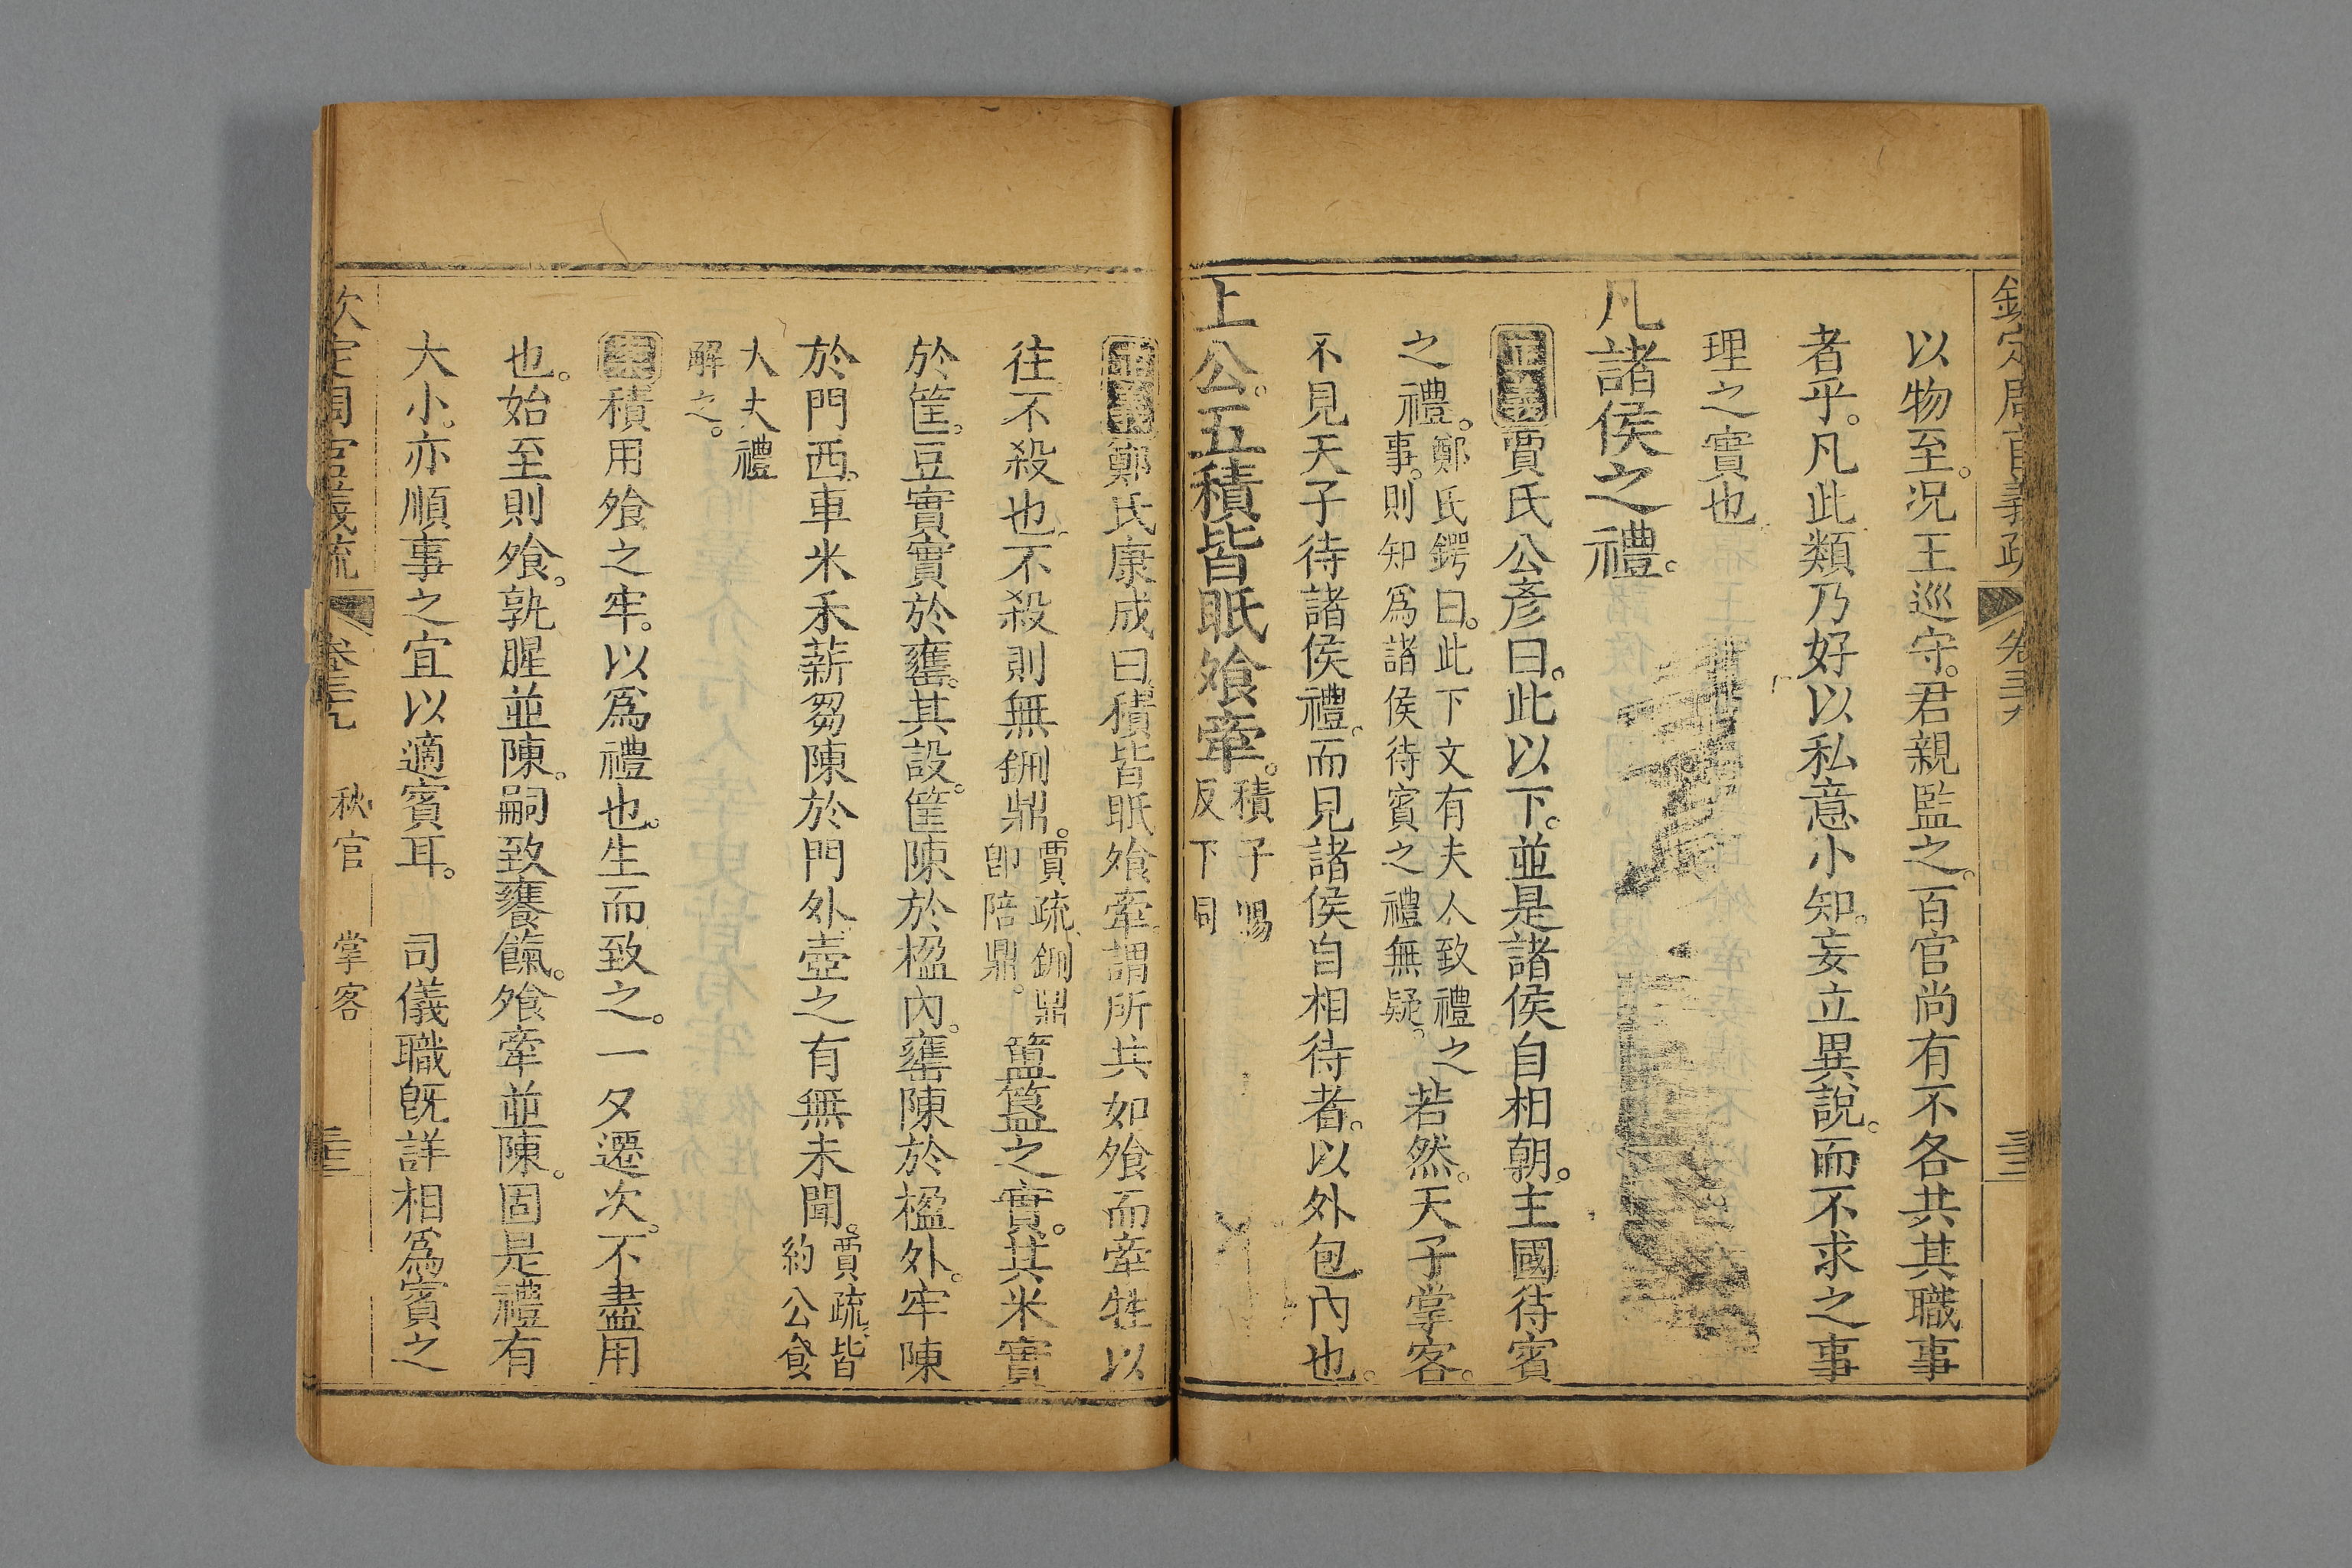 欽定周官義疏 卷三十九
以物至。况王巡守。君親監之。百官尚有不各共其職事
者乎。凡此類乃好以私意小知。妄立異說。而不求之事
理之實也
凡諸侯之禮。
正義賈氏公彥曰。此以下。並是諸侯自相朝。主國待賓
之禮。鄭氏鍔曰。此下文有夫人致禮之事。則知爲諸侯待賓之禮無疑。若然。天子掌客。
不見天子待諸侯禮。而見諸侯自相待者。以外包內也。
上公。五積皆眡飧牽。積子賜反下同
正義鄭氏康成曰。積皆眡飧牽。謂所共如飧而牽牲以
往。不殺也。不殺則無鉶鼎。賈疏。鉶鼎卽陪鼎。簠簋之實。其米實
於筐。豆實實於罋。其設。筐陳於楹內。罋陳於楹外。牢陳
於門西。車米禾薪芻陳於門外。壺之有無未聞。賈疏。皆約公食
大夫禮解之。
案積用飧之牢。以爲禮也。生而致之。一夕遷次。不盡用
也。始至則飧。孰腥並陳。嗣致饔餼。飧牽並陳。固是禮有
大小。亦順事之宜以適賓耳。 司儀職旣詳相爲賓之
欽定周官義疏 卷三十九 秋官 掌客